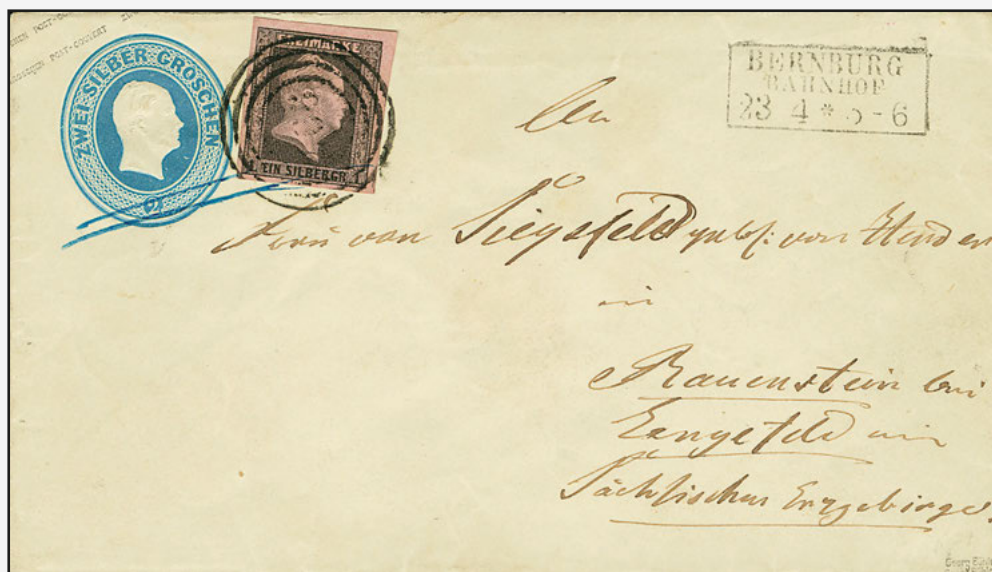 POST-COUVERT
ZWEI SILBER GROSCHEN
2
FREIMARKE
1 EIN SILBERGR. 1
BERNBURG
BAHNHOF
23 4 * 5-6
An
Frau von Siegsfeld gebh: von
in
Rauenstein bei
Lengefeld im
Sächsischen Erzgebirge.
Georg